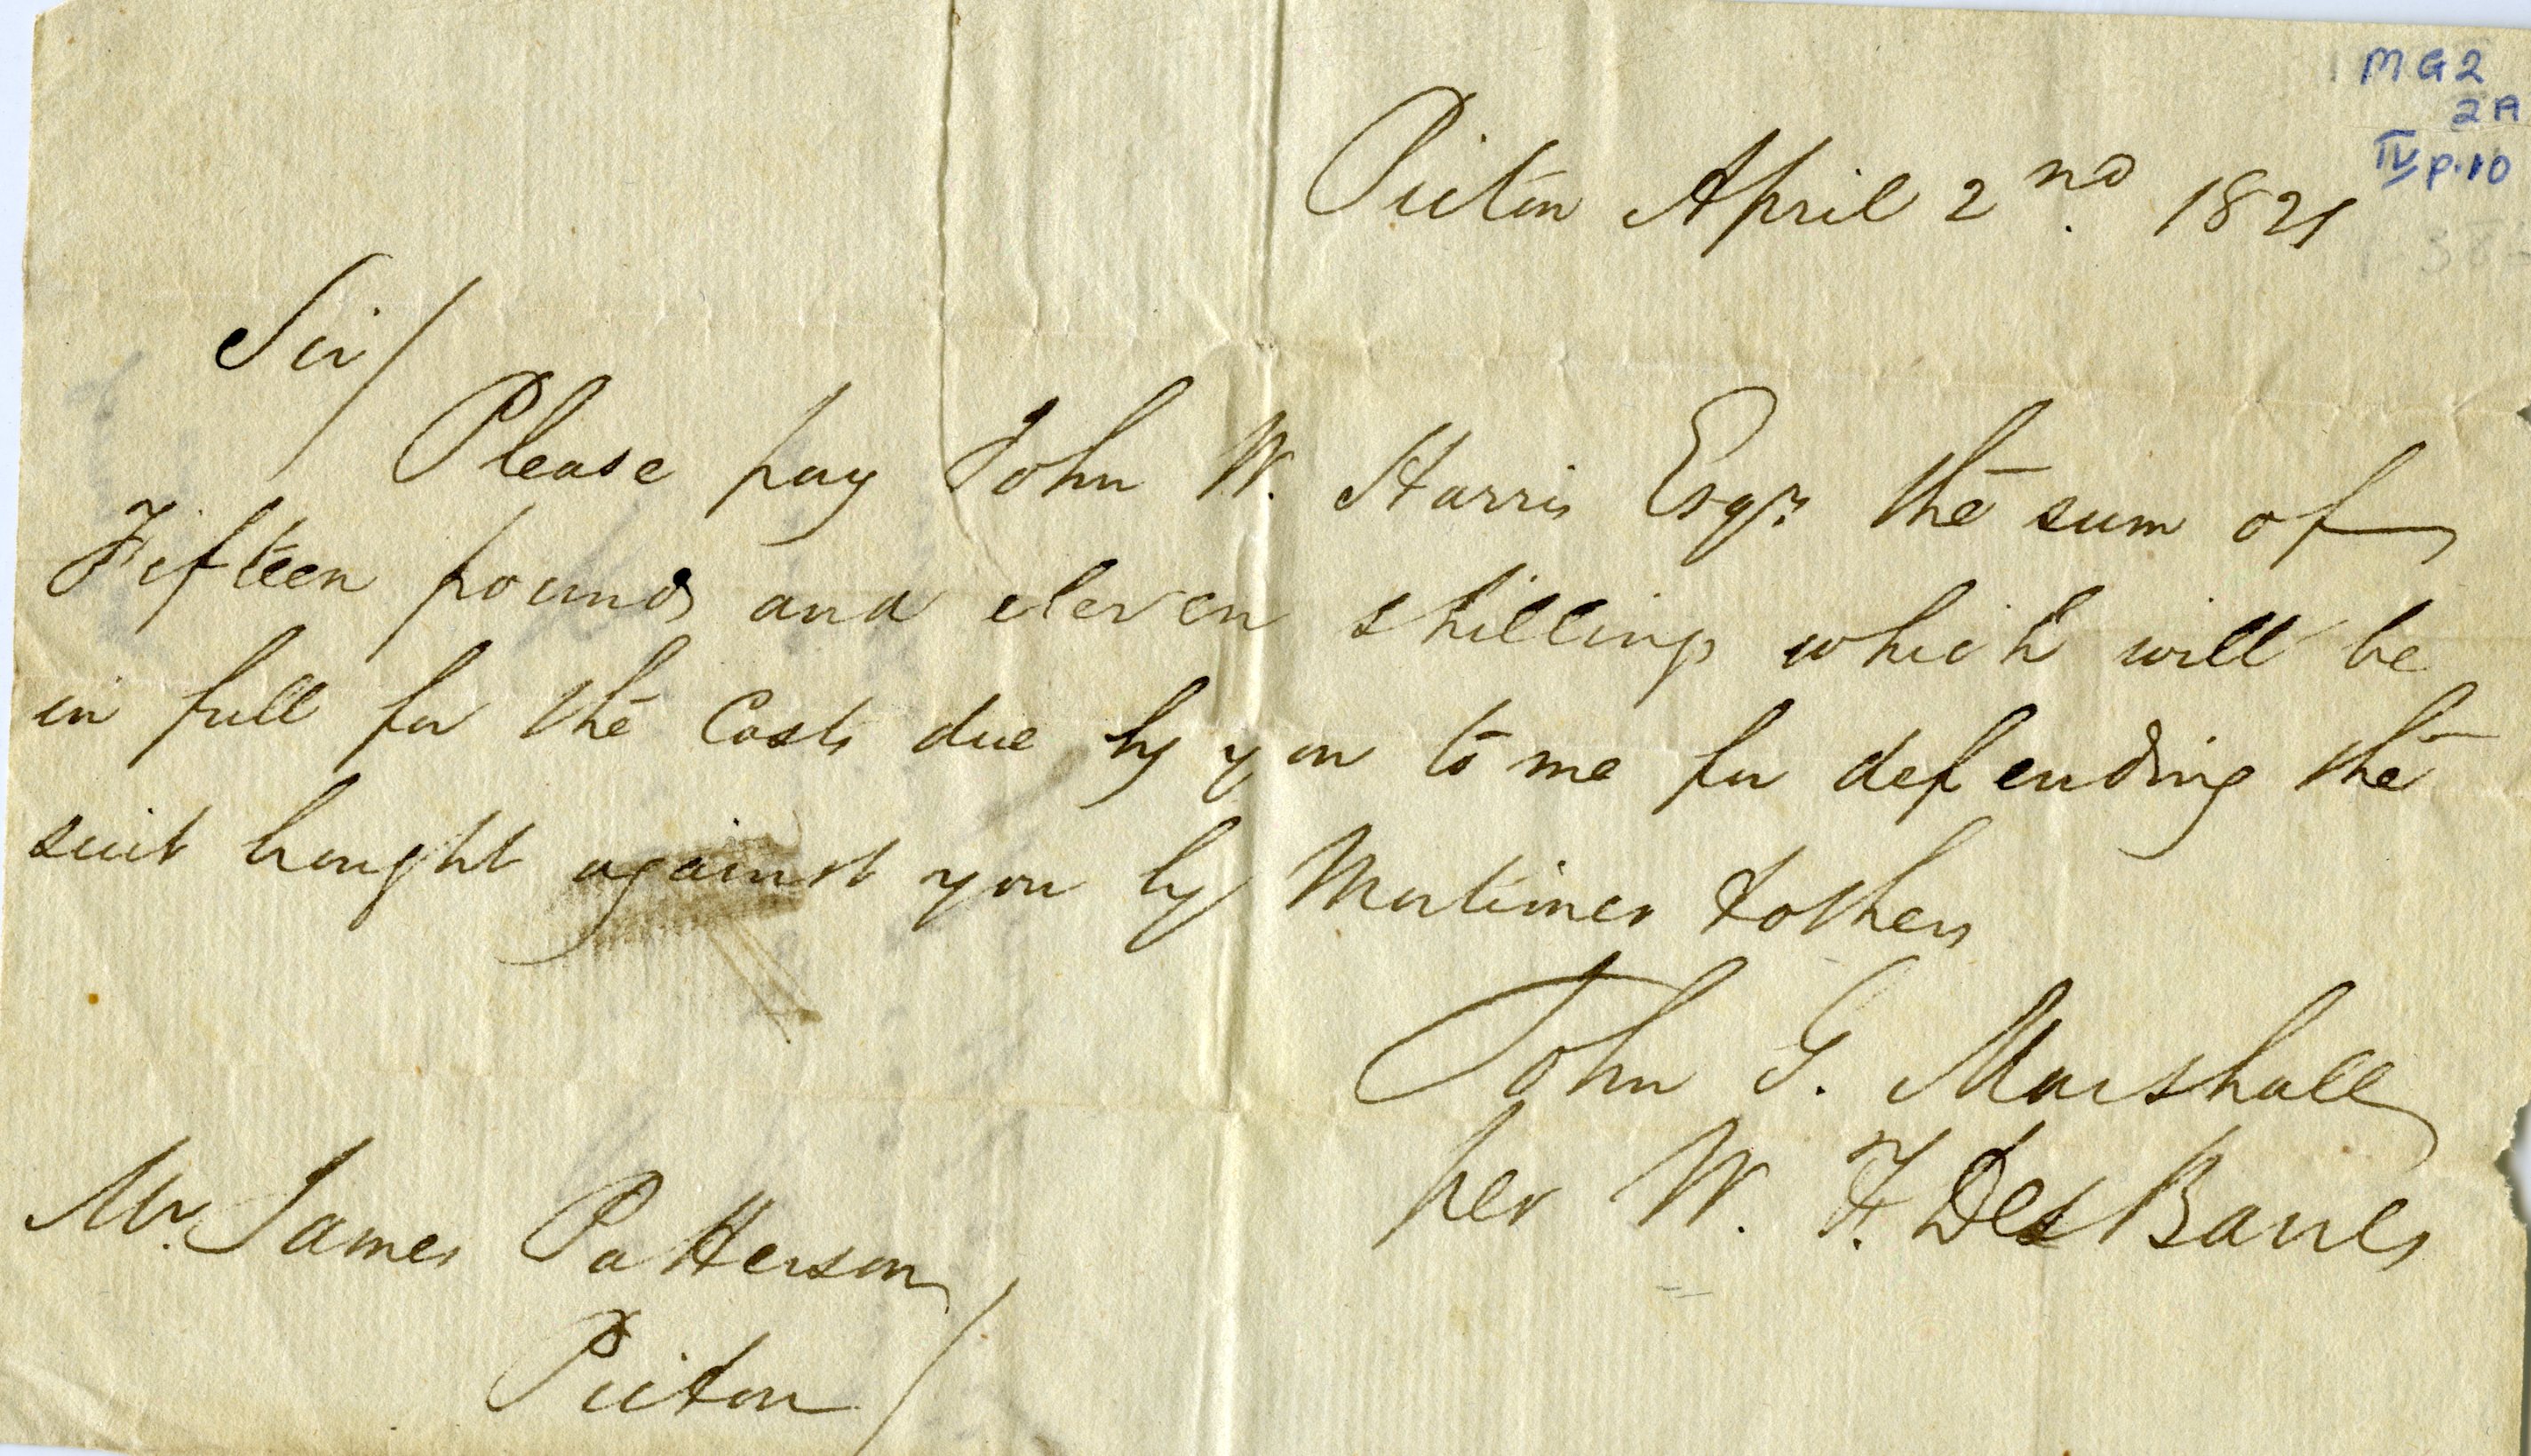 MG2
2A
IV p.10
Pictou April 2nd. 1821
Sir/
Please pay John W. Harris Esqr. the sum of
Fifteen pounds and eleven shillings which will be
in full for the Costs due by you to me for defending the
suit brought against you by Mortimer & others
John G. Marshall
per W. F. DesBarres
Mr. James Patterson
Pictou